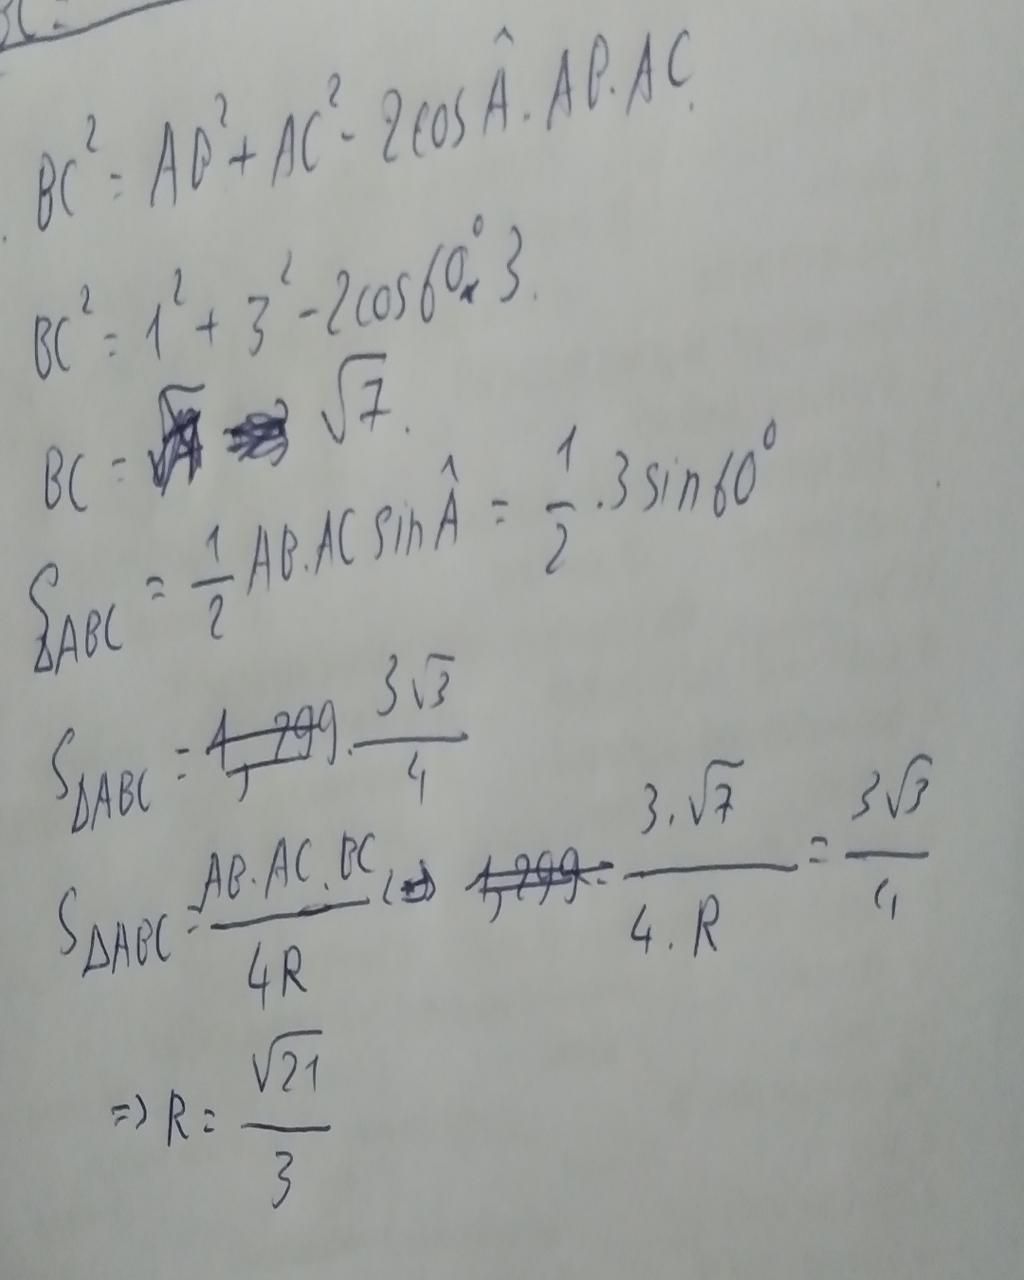 BC² = AB² + AC² - 2cosÂ. AB.AC.
BC² = 1² + 3² - 2cos60°. 3.
BC = √7.
S△ABC = 1/2 AB.AC sinÂ = 1/2 .3 sin60°
S△ABC = 1,299. 3√3/4
S△ABC = AB.AC.BC/4R (=) 1,299 = 3.√7/4.R = 3√3/4
=> R = √21/3